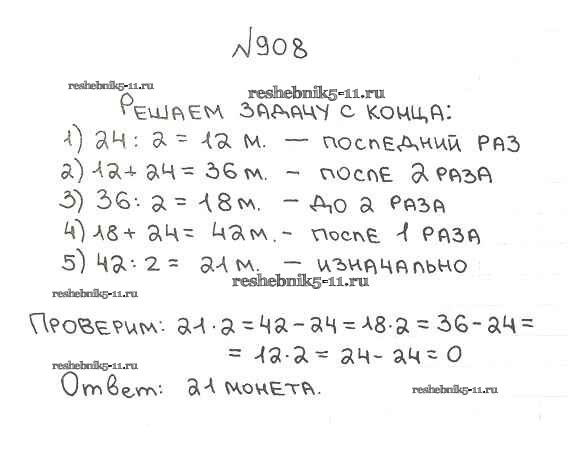 №908
reshebnik5-11.ru
reshebnik5-11.ru
Решаем задачу с конца:
1) 24 : 2 = 12 м. — последний раз
2) 12 + 24 = 36 м. – после 2 раза
3) 36 : 2 = 18 м. – до 2 раза
4) 18 + 24 = 42 м. - после 1 раза
5) 42 : 2 = 21 м. – изначально
reshebnik5-11.ru
reshebnik5-11.ru
Проверим: 21 · 2 = 42 – 24 = 18 · 2 = 36 – 24 =
= 12 · 2 = 24 – 24 = 0
reshebnik5-11.ru
Ответ: 21 монета.
reshebnik5-11.ru